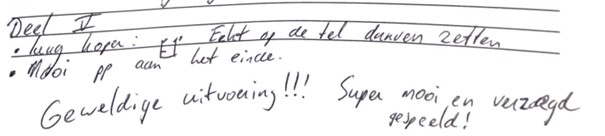 Deel V
• hoge hopen: Echt op de tel durven zetten
• Mooi pp aan het einde.
Geweldige uitvoering!!! Super mooi en verzorgd
gespeeld!